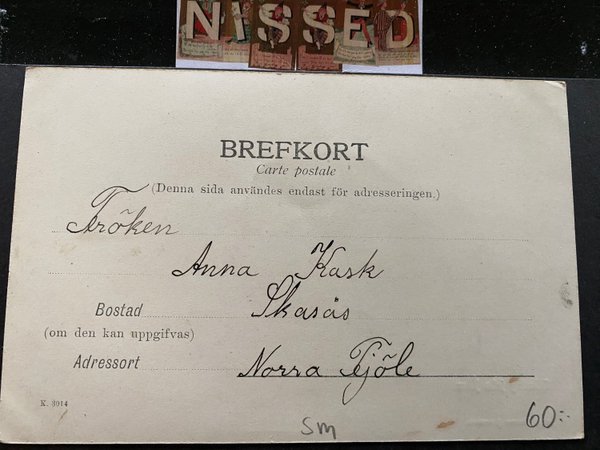 NISSED
BREFKORT
Carte postale
(Denna sida användes endast för adresseringen.)
Fröken
Anna Kask
Bostad Skasås
(om den kan uppgifvas)
Adressort Norra Fjöle
K. 3914
SM
60:-